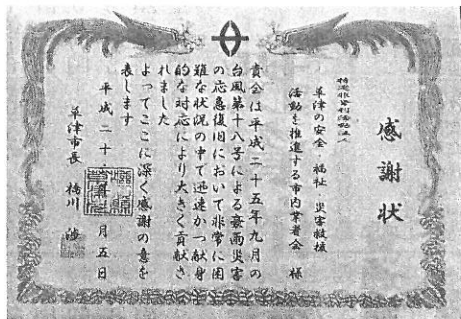 感謝状
特定非営利活動法人
草津の安全・福祉・災害救援
活動を推進する市内業者会 様
貴会は平成二十五年九月の
台風第十八号による豪雨災害
の応急復旧において非常に困
難な状況の中で迅速かつ献身
的な対応により大きく貢献さ
れました
よってここに深く感謝の意を
表します
平成二十 年 月五日
草津市長 橋川 渉